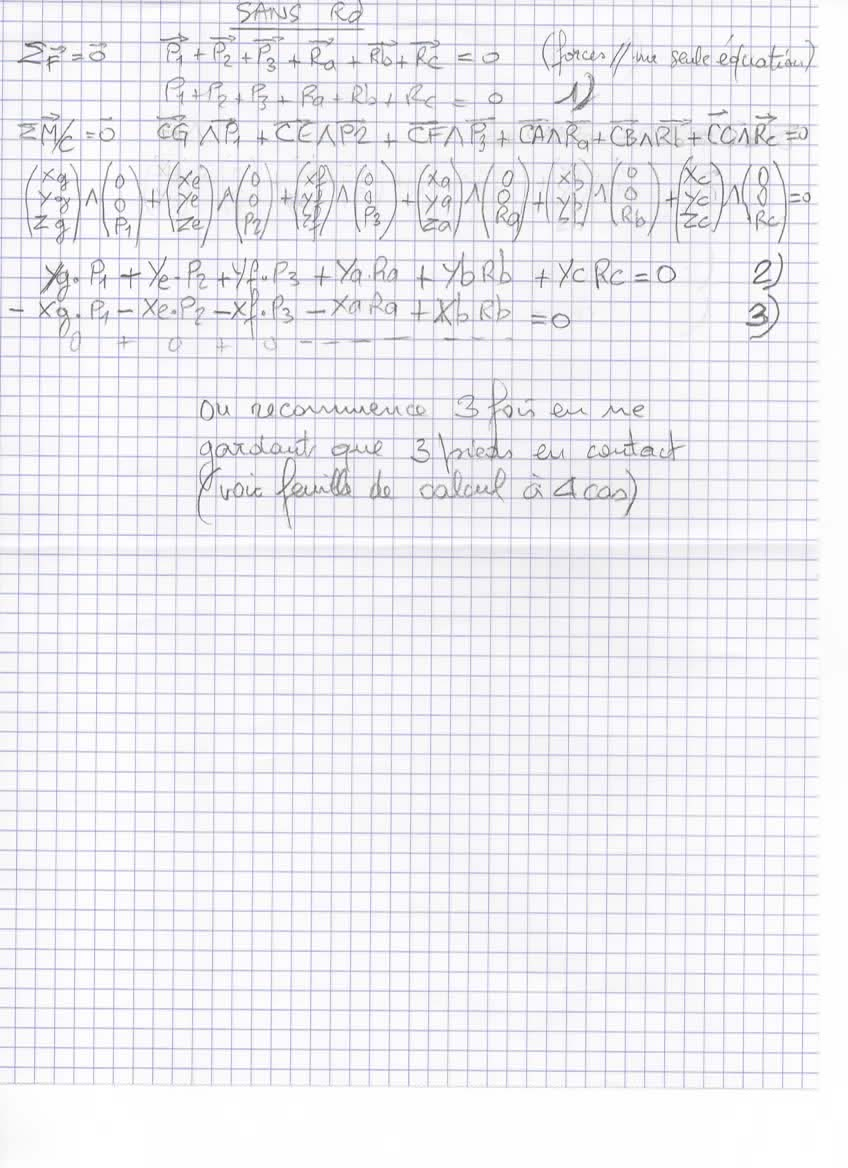 SANS Rd
ΣF⃗ = 0⃗   P⃗1 + P⃗2 + P⃗3 + R⃗a + R⃗b + R⃗c = 0   (forces // une seule équation)
P1 + P2 + P3 + Ra + Rb + Rc = 0   1)
ΣM⃗/C = 0⃗   CG⃗ ∧ P⃗1 + CE⃗ ∧ P⃗2 + CF⃗ ∧ P⃗3 + CA⃗ ∧ R⃗a + CB⃗ ∧ R⃗b + CC⃗ ∧ R⃗c = 0
(Xg Yg Zg) ∧ (0 0 P1) + (Xe Ye Ze) ∧ (0 0 P2) + (Xf Yf Zf) ∧ (0 0 P3) + (Xa Ya Za) ∧ (0 0 Ra) + (Xb Yb Zb) ∧ (0 0 Rb) + (Xc Yc Zc) ∧ (0 0 Rc) = 0
Yg.P1 + Ye.P2 + Yf.P3 + Ya.Ra + YbRb + YcRc = 0   2)
- Xg.P1 - Xe.P2 - Xf.P3 - XaRa + XbRb = 0   3)
0 + 0 + 0 - - - - - - -
On recommence 3 fois en ne
gardant que 3 pieds en contact
(voir feuille de calcul à 4 cas)